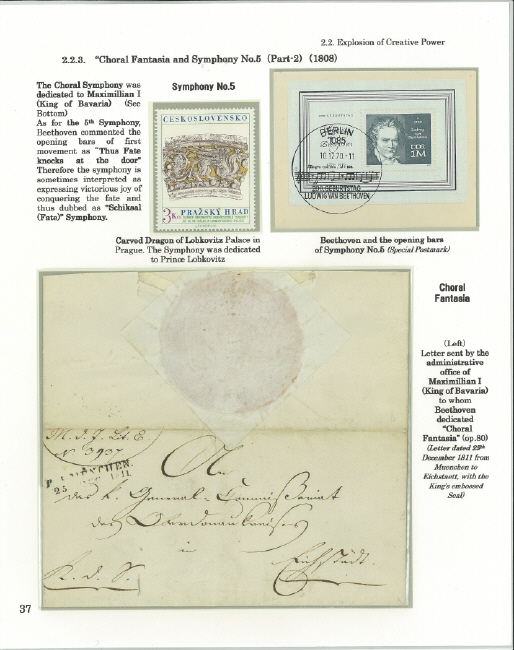 2.2. Explosion of Creative Power
2.2.3. "Choral Fantasia and Symphony No.5 (Part-2) (1808)
The Choral Symphony was
dedicated to Maximillian I
(King of Bavaria) (See
Bottom)
As for the 5th Symphony,
Beethoven commented the
opening bars of first
movement as "Thus Fate
knocks at the door"
Therefore the symphony is
sometimes interpreted as
expressing victorious joy of
conquering the fate and
thus dubbed as "Schiksal
(Fate)" Symphony.
Symphony No.5
ČESKOSLOVENSKO
3 Kčs
PRAŽSKÝ HRAD
Carved Dragon of Lobkovitz Palace in
Prague. The Symphony was dedicated
to Prince Lobkovitz
BERLIN
1085
10.12.70-11
200. GEBURTSTAG
LUDWIG VAN BEETHOVEN
DDR
1M
Beethoven and the opening bars
of Symphony No.5 (Special Postmark)
Choral
Fantasia
(Left)
Letter sent by the
administrative
office of
Maximillian I
(King of Bavaria)
to whom
Beethoven
dedicated
"Choral
Fantasia" (op.80)
(Letter dated 25th
December 1811 from
Muenchen to
Eichstaett, with the
King's embossed
Seal)
M. d. J. Lt. E.
No 3907
MÜNCHEN.
25
An
das K. General-Commissariat
des Oberdonaukreises
in
Eichstädt.
K. d. S.
37